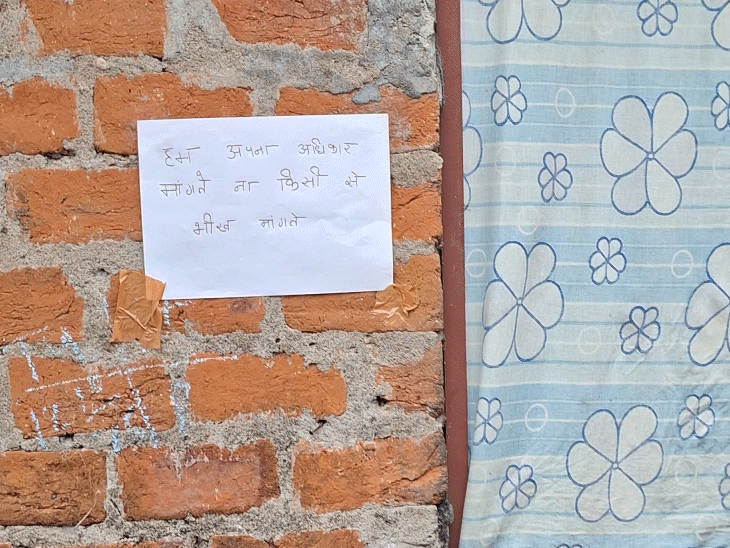 हम अपना अधिकार
मांगते ना किसी से
भीख मांगते